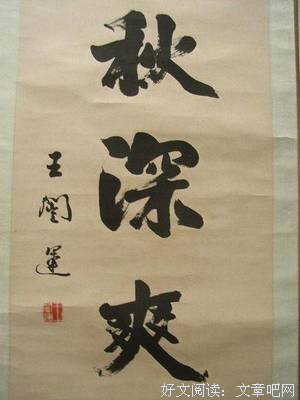 秋深爽
王闓運
好文阅读：文章吧网